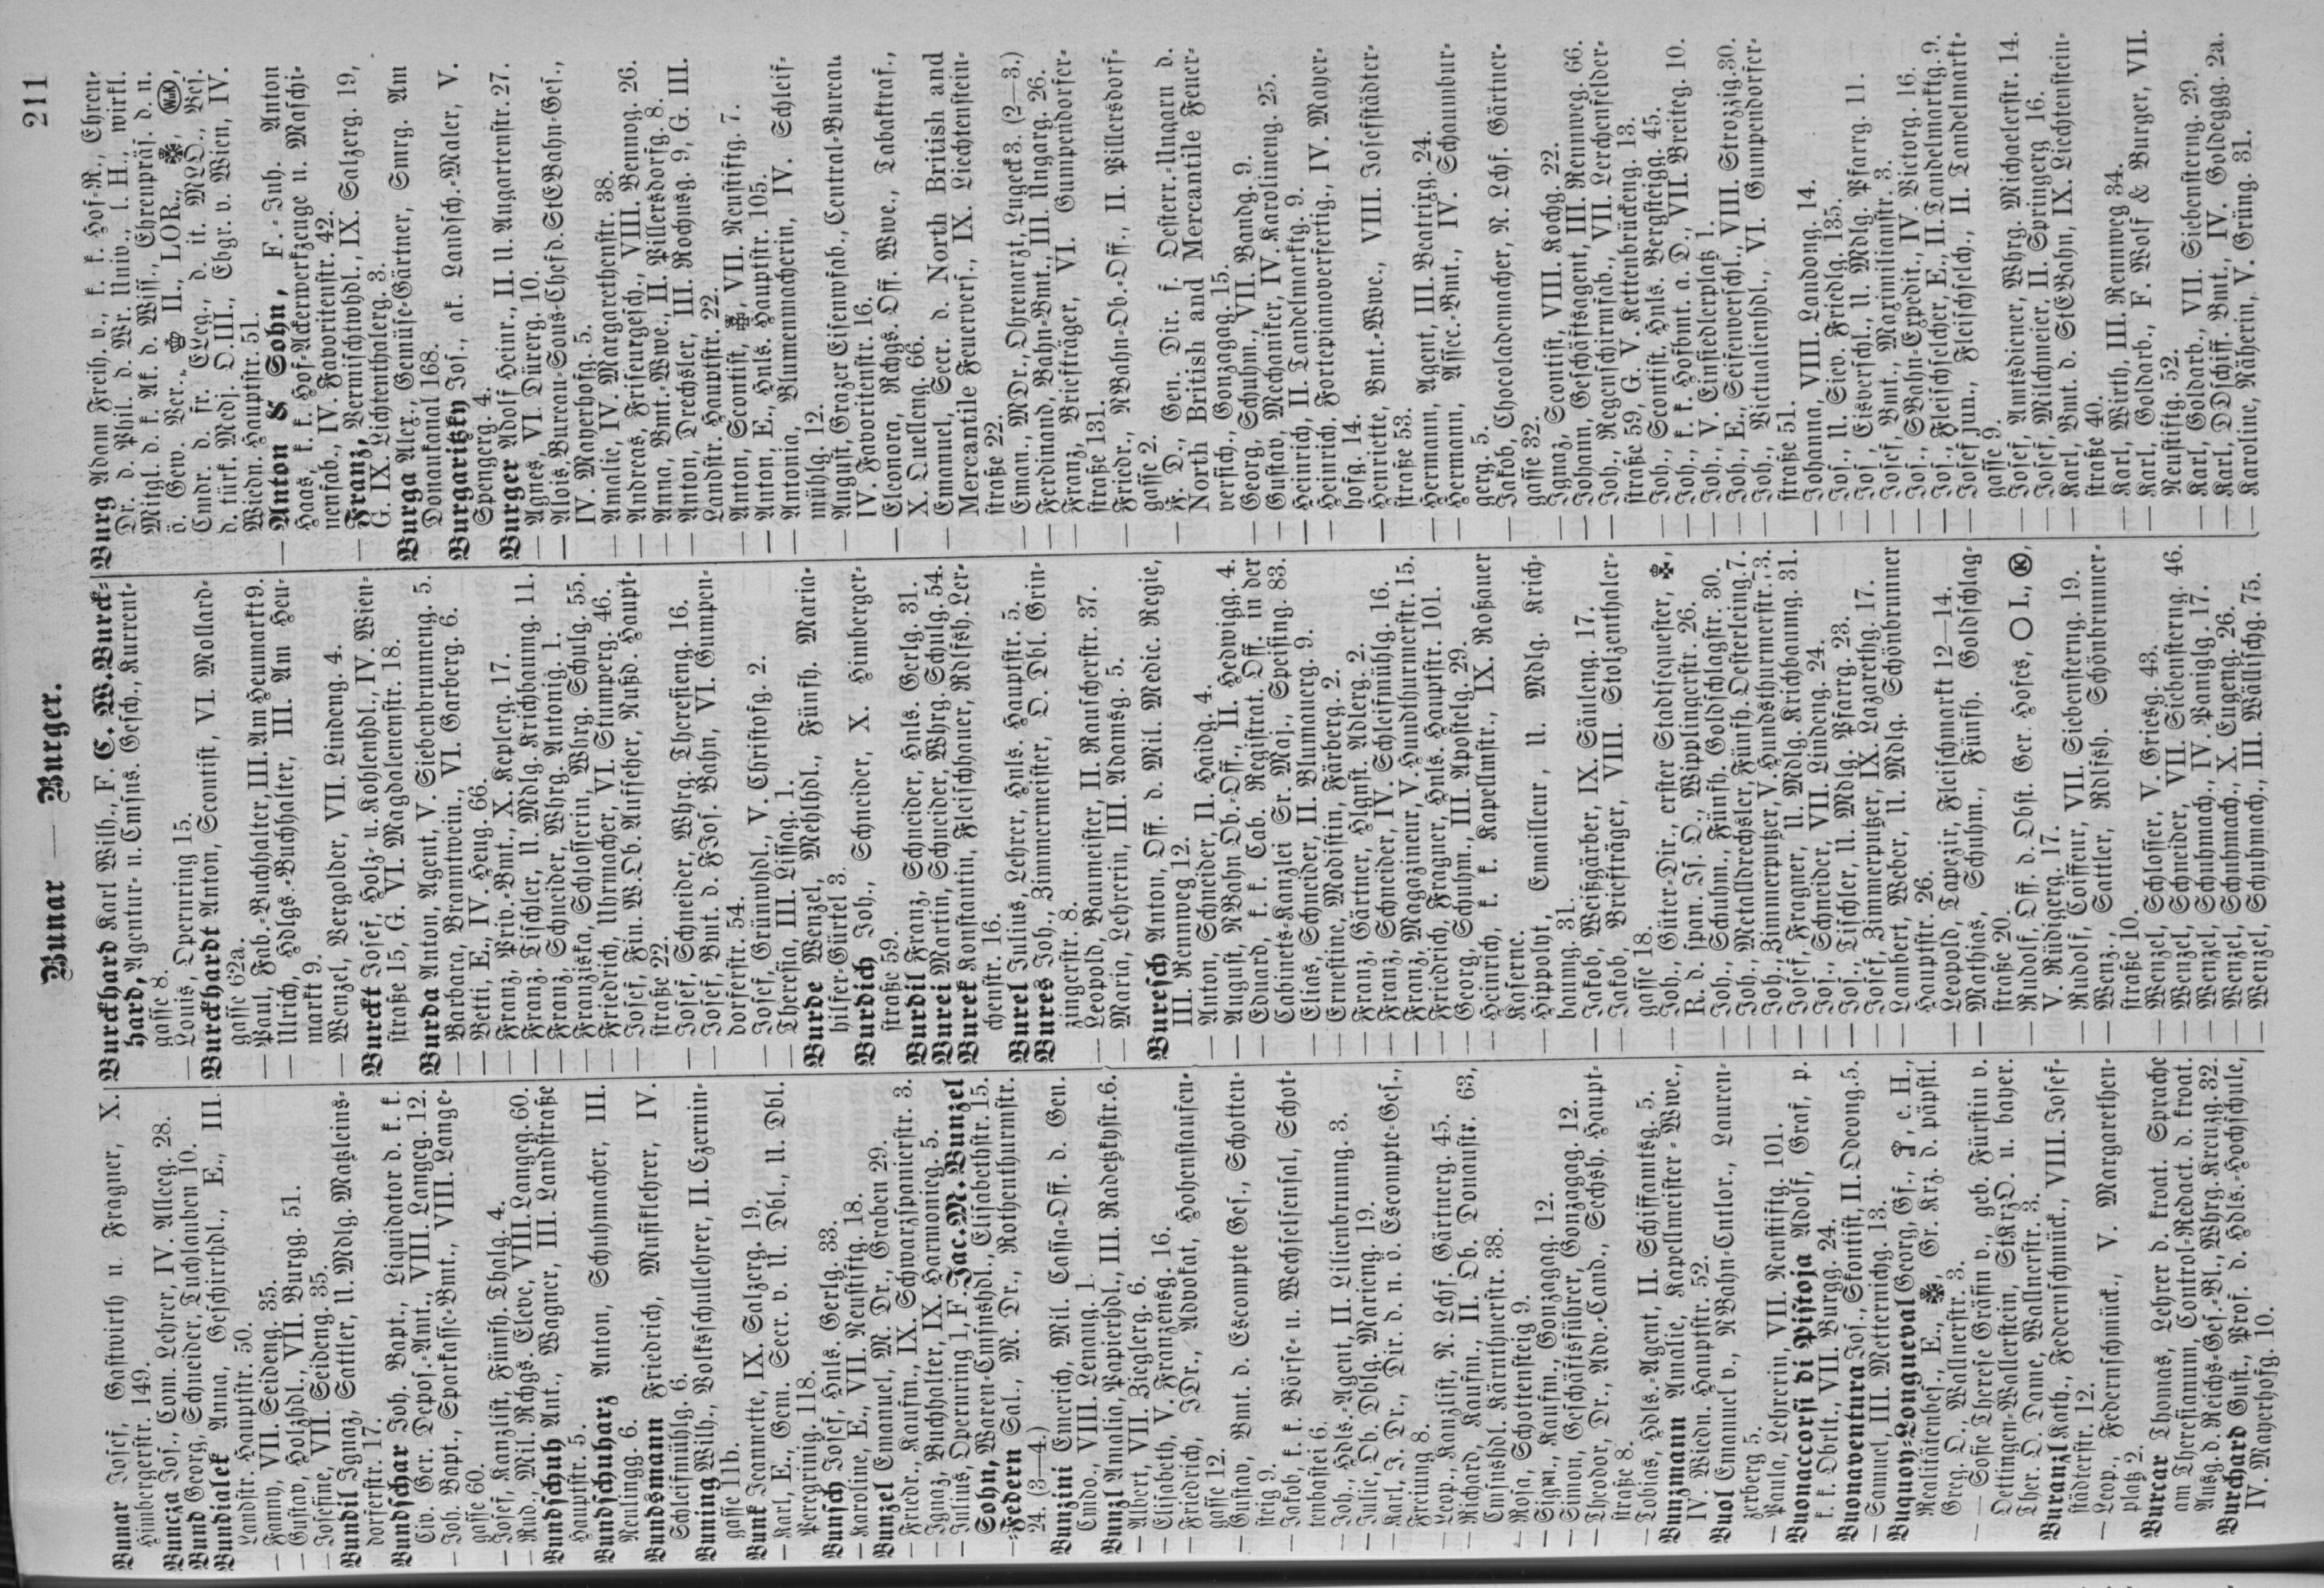 Bunar — Burger.
211
Bunar Josef, Gastwirth u. Fragner, X.
Himbergerstr. 149.
Buncza Jos., Com. Lehrer, IV. Alleeg. 28.
Bund Georg, Schneider, Tuchlauben 10.
Bundialek Anna, Geschirrhdl., E., III.
Landstr. Hauptstr. 50.
— Fanny, VII. Seideng. 35.
— Gustav, Holzhdl., VII. Burgg. 51.
— Josefine, VII. Seideng. 35.
Bundil Ignaz, Sattler, U. Mdlg. Matzleins-
dorferstr. 17.
Bundschar Joh. Bapt., Liquidator d. k. k.
Civ. Ger. Depos.-Amt., VIII. Langeg. 12.
— Joh. Bapt., Sparkasse-Bmt., VIII. Lange-
gasse 60.
— Josef, Kanzlist, Fünfh. Thalg. 4.
— Rud. Mil. Rchgs. Eleve, VIII. Langeg. 60.
Bundschuh Ant., Wagner, III. Landstraße
Hauptstr. 5.
Bundschuharz Anton, Schuhmacher, III.
Reulingg. 6.
Bundsmann Friedrich, Musiklehrer, IV.
Schleifmühlg. 6.
Buning Wilh., Volksschullehrer, II. Czernin-
gasse 11b.
Bunk Jeannette, IX. Salzerg. 19.
— Karl, E., Gem. Secr. v. U. Dbl., U. Dbl.
Peregrinig. 118.
Bunsch Josef, Hnls. Gerlg. 33.
— Karoline, E., VII. Neustiftg. 18.
Bunzel Emanuel, M. Dr., Graben 29.
— Friedr., Kaufm., IX. Schwarzspanierstr. 3.
— Ignaz, Buchhalter, IX. Harmonieg. 5.
— Julius, Opernring 1, F. Jac. M. Bunzel
Sohn, Waren-Cmsnshdl., Elisabethstr. 15.
—-Federn Sal., M. Dr., Rothenthurmstr.
24. (3—4.)
Bunzini Emerich, Mil. Cassa-Off. d. Gen.
Cmdo., VIII. Lenaug. 1.
Bunzl Amalia, Papierhdl., III. Radetzkystr. 6.
— Albert, VII. Zieglerg. 6.
— Elisabeth, V. Franzensg. 16.
— Friedrich, JDr., Advokat, Hohenstaufen-
gasse 12.
— Gustav, Bmt. d. Escompte Ges., Schotten-
steig 9.
— Jakob, k. k. Börse- u. Wechselsensal, Schot-
tenbastei 6.
— Joh., Hdls.-Agent, II. Lilienbrunng. 3.
— Julie, Ob. Dblg. Marieng. 19.
— Karl, J. Dr., Dir. d. n. ö. Escompte-Ges.,
Freiung 8.
— Leop., Kanzlist, R. Lchf. Gärtnerg. 45.
— Richard, Kaufm., II. Ob. Donaustr. 63,
Cmsnshdl. Kärnthnerstr. 38.
— Rosa, Schottensteig 9.
— Sigm., Kaufm., Gonzagag. 12.
— Simon, Geschäftsführer, Gonzagag. 12.
— Theodor, Dr., Adv.-Cand., Sechsh. Haupt-
straße 8.
— Tobias, Hdls.-Agent, II. Schiffamtsg. 5.
Bunzmann Amalie, Kapellmeister-Wwe.,
IV. Wiedn. Hauptstr. 52.
Buol Emanuel v., NBahn-Cntlor., Lauren-
zerberg 5.
— Paula, Lehrerin, VII. Neustiftg. 101.
Buonacorsi di Pistoja Adolf, Graf, p.
k. k. Obrlt., VII. Burgg. 24.
Buonaventura Jos., Skontist, II. Odeong. 5.
— Samuel, III. Metternichg. 13.
Buquoy-Longueval Georg, Gf., e. H.,
Realitätenbes., E., Gr. Krz. d. päpstl.
Greg. O., Wallnerstr. 3.
— Sofie Therese Gräfin v., geb. Fürstin v.
Oettingen-Wallerstein, StKrzO. u. bayer.
Ther. O. Dame, Wallnerstr. 3.
Buranzl Kath., Federnschmück., VIII. Josef-
städterstr. 12.
— Leop., Federnschmück., V. Margarethen-
platz 2.
Burcar Thomas, Lehrer d. kroat. Sprache
am Theresianum, Control-Redact. d. kroat.
Ausg. d. Reichs-Ges.-Bl., Whrg. Kreuzg. 32.
Burchard Gust., Prof. d. Hdls.-Hochschule,
IV. Mayerhofg. 10.
Burckhard Karl Wilh., F. C. W. Burck-
hard, Agentur- u. Cmsns. Gesch., Kurrent-
gasse 8.
— Louis, Opernring 15.
Burckhardt Anton, Scontist, VI. Mollard-
gasse 62a.
— Paul, Fab.-Buchhalter, III. Am Heumarkt 9.
— Ulrich, Hdlgs.-Buchhalter, III. Am Heu-
markt 9.
— Wenzel, Vergolder, VII. Lindeng. 4.
Burckt Josef, Holz- u. Kohlenhdl., IV. Wien-
straße 15, G. VI. Magdalenenstr. 18.
Burda Anton, Agent, V. Siebenbrunneng. 5.
— Barbara, Branntwein., VI. Garberg. 6.
— Betti, E., IV. Heug. 66.
— Franz, Priv.-Bmt., X. Keplerg. 17.
— Franz, Tischler, U. Mdlg. Krichbaumg. 11.
— Franz, Schneider, Whrg. Antonig. 1.
— Franziska, Schlosserin, Whrg. Schulg. 55.
— Friedrich, Uhrmacher, VI. Stumperg. 46.
— Josef, Fin. W.Ob. Aufseher, Nußd. Haupt-
straße 22.
— Josef, Schneider, Whrg. Theresieng. 16.
— Josef, Bmt. d. FJos. Bahn, VI. Gumpen-
dorferstr. 54.
— Josef, Grünwhdl., V. Christofg. 2.
— Theresia, III. Lissag. 1.
Burde Wenzel, Mehlhdl., Fünfh. Maria-
hilfer-Gürtel 3.
Burdich Joh., Schneider, X. Himberger-
straße 59.
Burdil Franz, Schneider, Hnls. Gerlg. 31.
Burei Martin, Schneider, Whrg. Schulg. 54.
Burek Konstantin, Fleischhauer, Rdlfsh. Ler-
chenstr. 16.
Burel Julius, Lehrer, Hnls. Hauptstr. 5.
Bures Joh., Zimmermeister, O. Dbl. Grin-
zingerstr. 8.
— Leopold, Baumeister, II. Rauscherstr. 37.
— Maria, Lehrerin, III. Adamsg. 5.
Buresch Anton, Off. d. Mil. Medic. Regie,
III. Rennweg 12.
— Anton, Schneider, II. Haidg. 4.
— August, NBahn Ob.-Off., II. Hedwigg. 4.
— Eduard, k. k. Cab. Registrat. Off. in der
Cabinets-Kanzlei Sr. Maj., Speising. 83.
— Elias, Schneider, II. Blumauerg. 9.
— Ernestine, Modistin, Färberg. 2.
— Franz, Gärtner, Hgnst. Adlerg. 2.
— Franz, Schneider, IV. Schleifmühlg. 16.
— Franz, Magazineur, V. Hundthurmerstr. 15.
— Friedrich, Fragner, Hnls. Hauptstr. 101.
— Georg, Schuhm., III. Apostelg. 29.
— Heinrich, k. k. Kapellmstr., IX. Roßauer
Kaserne.
— Hippolyt, Emailleur, U. Mdlg. Krich-
baumg. 31.
— Jakob, Weißgärber, IX. Säuleng. 17.
— Jakob, Briefträger, VIII. Stolzenthaler-
gasse 18.
— Joh., Güter-Dir., erster Stadtsequester,
R. d. span. Is. O., Wipplingerstr. 26.
— Joh., Schuhm., Fünfh. Goldschlagstr. 30.
— Joh., Metalldrechsler, Fünfh. Oesterleing. 7.
— Joh., Zimmerputzer, V. Hundsthurmerstr. 3.
— Josef, Fragner, U. Mdlg. Krichbaumg. 31.
— Josef, Schneider, VII. Lindeng. 24.
— Jos., Tischler, U. Mdlg. Pfarrg. 23.
— Josef, Zimmerputzer, IX. Lazarethg. 17.
— Lambert, Weber, U. Mdlg. Schönbrunner
Hauptstr. 26.
— Leopold, Tapezir, Fleischmarkt 12—14.
— Mathias, Schuhm., Fünfh. Goldschlag-
straße 20.
— Rudolf, Off. d. Obst. Ger. Hofes, O I., Ⓚ,
V. Rüdigerg. 17.
— Rudolf, Coiffeur, VII. Siebensterng. 19.
— Wenz., Sattler, Rdlfsh. Schönbrunner-
straße 10.
— Wenzel, Schlosser, V. Griesg. 43.
— Wenzel, Schneider, VII. Siebensterng. 46.
— Wenzel, Schuhmach., IV. Paniglg. 17.
— Wenzel, Schuhmach., X. Eugeng. 26.
— Wenzel, Schuhmach., III. Wällischg. 75.
Burg Adam Freih. v., k. k. Hof-R., Ehren-
Dr. d. Phil. d. Wr. Univ., l. H., wirkl.
Mitgl. d. k. Ak. d. Wiss., Ehrenpräs. d. n.
ö. Gew. Ver., II., LOR., WuK,
Cmdr. d. fr. ELeg., d. it. MLO., Bes.
d. türk. Medj. O. III., Ehbgr. v. Wien, IV.
Wiedn. Hauptstr. 51.
— Anton & Sohn, F.-Inh. Anton
Haas, k. k. Hof-Ackerwerkzeuge u. Maschi-
nenfab., IV. Favoritenstr. 42.
— Franz, Vermischtwhdl., IX. Salzerg. 19,
G. IX. Lichtenthalerg. 3.
Burga Alex., Gemüse-Gärtner, Smrg. Am
Donaukanal 168.
Burgaritzky Jos., ak. Landsch.-Maler, V.
Spengerg. 4.
Burger Adolf Heinr., II. U. Augartenstr. 27.
— Agnes, VI. Dürerg. 10.
— Alois, Bureau-Sous-Chef d. StEBahn-Ges.,
IV. Mayerhofg. 5.
— Amalie, IV. Margarethenstr. 38.
— Andreas, Friseurgesch., VIII. Bennog. 26.
— Anna, Bmt.-Wwe., II. Pillersdorfg. 8.
— Anton, Drechsler, III. Rochusg. 9, G. III.
Landstr. Hauptstr. 22.
— Anton, Scontist, VII. Neustiftg. 7.
— Anton, E., Hnls. Hauptstr. 105.
— Antonia, Blumenmacherin, IV. Schleif-
mühlg. 12.
— August, Grazer Eisenwfab., Central-Bureau
IV. Favoritenstr. 16.
— Eleonora, Rchgs. Off. Wwe., Tabaktraf.,
X. Quelleng. 66.
— Emanuel, Secr. d. North British and
Mercantile Feuervers., IX. Liechtenstein-
straße 22.
— Eman., MDr., Ohrenarzt, Lugeck 3. (2—3.)
— Ferdinand, Bahn-Bmt., III. Ungarg. 26.
— Franz, Briefträger, VI. Gumpendorfer-
straße 131.
— Friedr., NBahn-Ob.-Off., II. Pillersdorf-
gasse 2.
— F. D., Gen. Dir. f. Oesterr.-Ungarn d.
North British and Mercantile Feuer-
versich., Gonzagag. 15.
— Georg, Schuhm., VII. Bandg. 9.
— Gustav, Mechaniker, IV. Karolineng. 25.
— Heinrich, II. Tandelmarktg. 9.
— Heinrich, Fortepianoverfertig., IV. Mayer-
hofg. 14.
— Henriette, Bmt.-Wwe., VIII. Josefstädter-
straße 53.
— Hermann, Agent, III. Beatrixg. 24.
— Hermann, Assec.-Bmt., IV. Schaumbur-
gerg. 5.
— Jakob, Chocolademacher, R. Lchf. Gärtner-
gasse 32.
— Ignaz, Scontist, VIII. Kochg. 22.
— Johann, Geschäftsagent, III. Rennweg. 66.
— Joh., Regenschirmfab., VII. Lerchenfelder-
straße 59, G. V. Kettenbrückeng. 13.
— Joh., Scontist, Hnls. Bergsteigg. 45.
— Joh., k. k. Hofbmt. a. D., VII. Breiteg. 10.
— Joh., V. Einsiedlerplatz 1.
— Joh., E., Seifenverschl., VIII. Strozzig. 30.
— Joh., Victualienhdl., VI. Gumpendorfer-
straße 51.
— Johanna, VIII. Laudong. 14.
— Jos., U. Siev. Friedlg. 135.
— Jos., Esverschl., U. Mdlg. Pfarrg. 11.
— Josef, Bmt., Maximilianstr. 3.
— Jos., SBahn-Expedit., IV. Victorg. 16.
— Jos., Fleischselcher, E., II. Tandelmarktg. 9.
— Josef jun., Fleischselch., II. Tandelmarkt-
gasse 9.
— Josef, Amtsdiener, Whrg. Michaelerstr. 14.
— Josef, Milchmeier, II. Springerg 16.
— Karl, Bmt. d. StEBahn, IX. Liechtenstein-
straße 40.
— Karl, Wirth, III. Rennweg 34.
— Karl, Goldarb., F. Wolf & Burger, VII.
Neustiftg. 52.
— Karl, Goldarb., VII. Siebensterng. 29.
— Karl, DDschiff. Bmt., IV. Goldeggg. 2a.
— Karoline, Näherin, V. Grüng. 31.